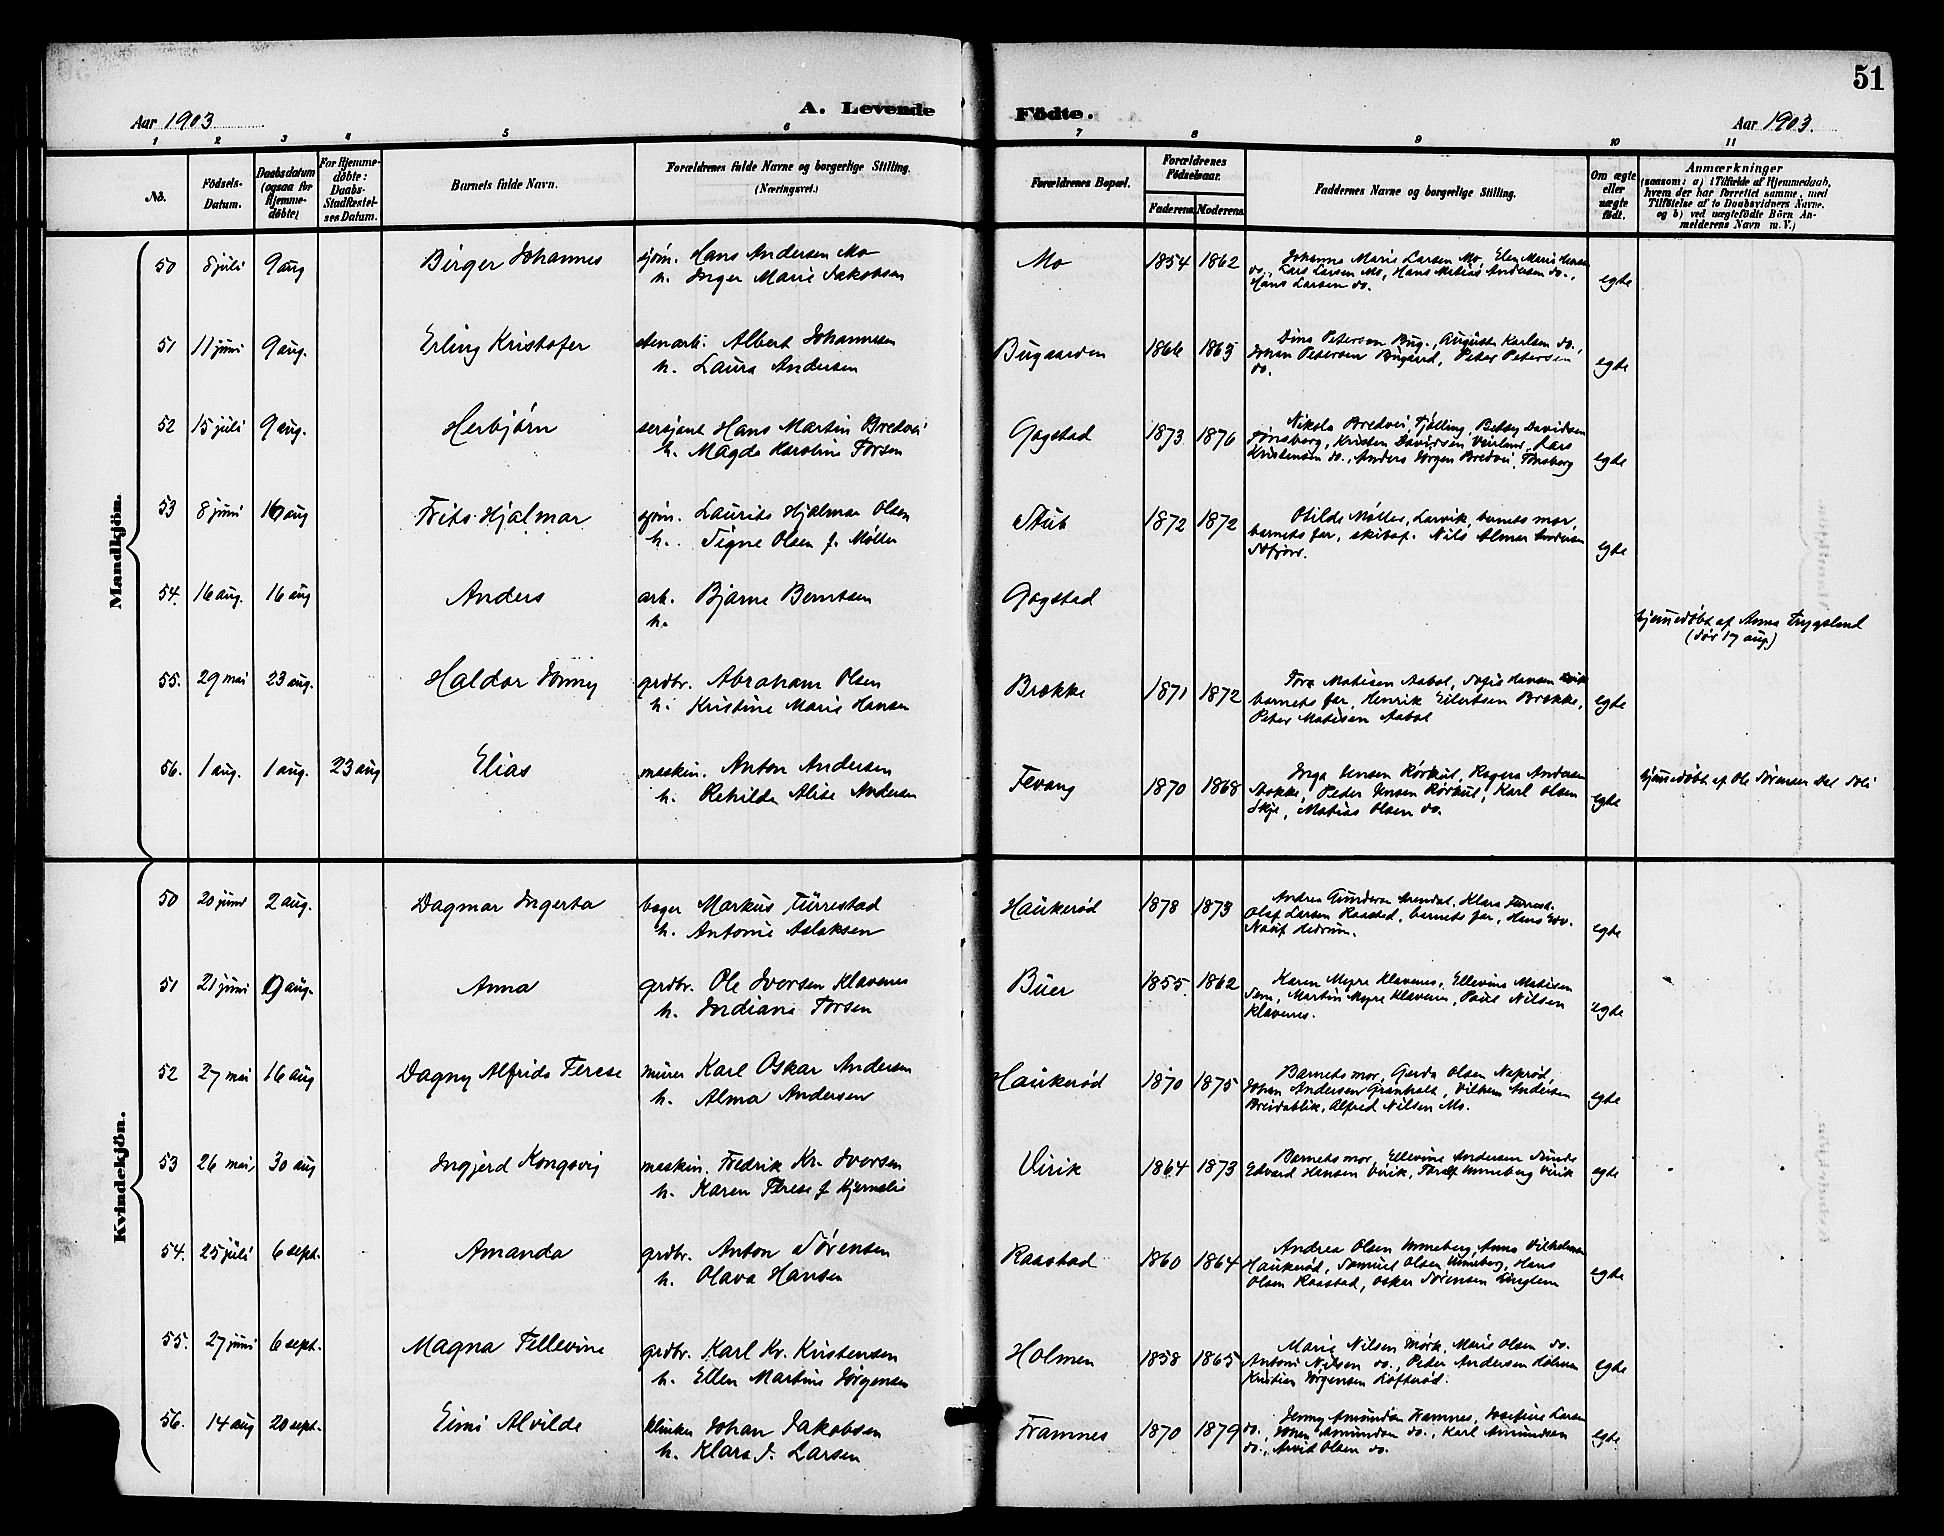 51
Aar 1903
A. Levende
Födte.
Aar 1903.
1 2 3 4 5 6 7 8 9 10 11
No.
Födsels-
Datum.
Daabsdatum
(ogsaa for
Hjemme-
döbte)
For Hjemme-
döbte:
Daabs-
Stadfæstel-
ses Datum.
Barnets fulde Navn.
Forældrenes fulde Navne og borgerlige Stilling.
(Næringsvei.)
Forældrenes Bopæl.
Forældrenes
Födselsaar.
Faderens
Moderens
Faddernes Navne og borgerlige Stilling.
Om ægte
eller
uægte
födt.
Anmærkninger
(saasom: a) i Tilfælde af Hjemmedaab,
hvem der har forrettet samme, med
Tilföielse af to Daabsvidners Navne,
og b) ved uægtefödte Börn An-
melderens Navn m. V.)
Mandkjön.
50 8 juli 9 aug Birger Johannes sjøm. Hans Andersen Mo
h. Inger Marie Jakobsen
Mo 1854 1862 Johanne Marie Larsen Mo, Elen Marie Hansen
do., Lars Larsen Mo, Hans Matias Andersen do.,
Hans Larsen do.
egte
51 11 juni 9 aug. Erling Kristofer stenarb. Albert Johannesen
h. Laura Andersen
Bugaarden 1866 1865 Dina Petersen Bug., Auguste Karlsen do.,
Johan Petersen Bugaard, Peter Petersen
do.
egte
52 15 juli 9 aug. Herbjørn sersjant Hans Martin Bredvei
h. Magda Karoline Torsen
Gogstad 1873 1876 Nikola Bredvei, Tjølling, Betsy Davidsen
Tønsberg, Kristen Davidsen Veirland, Lars
Kristensen do., Anders Jørgen Bredvei, Tønsberg
egte
53 8 juni 16 aug Frits Hjalmar sjøm. Laurits Hjalmar Olsen
h. Signe Olsen f. Møller
Stub 1872 1872 Otilde Møller, Larvik, barnets mor,
barnets far, skibsf. Nils Almar Andersen
egte
54. 16 aug. 16 aug Anders arb. Bjarne Berntsen
h.
Gogstad
hjemmedøbt af Anna Trygsland
(dør 17 aug)
55. 29 mai 23 aug. Haldor Jonny grdbr. Abraham Olsen
h. Kristine Marie Hansen
Brække 1871 1872 Tora Matisen Aabol, Sofie Hansen
barnets far, Henrik Eilertsen Brække,
Peter Matisen Aabol
egte
56. 1 aug. 1 aug. 23 aug Elias maskin. Anton Andersen
h. Rehilda Alise Andersen
Fevang 1870 1868 Inga Jensen Rørkul, Ragna Andersen
Stokke, Peder Jensen Rørkul, Karl Olsen
Skje, Matias Olsen do.
egte
hjemmedøbt af Ole Sørensen Dal
Kvindekjön.
50 20 juni 2 aug. Dagmar Ingerta bager Markus Furrestad
h. Antonie Aslaksen
Haukerød 1878 1873 Andrea Gunderson Arendal, Klara Furrest.
Olaf Larsen Raastad, barnets far, Hans Edv.
Hedrum.
egte
51 21 juni 9 aug. Anna grdbr. Ole Iversen Klavenes
h. Indiane Torsen
Buer 1855. 1862 Karen Myre Klavenes, Ellevine Matisen
Sem, Martin Myre Klavenes, Paul Nilsen
Klavenes.
egte
52 27 mai 16 aug Dagny Alfrida Terese murer Karl Oskar Andersen
h. Alma Andersen
Haukerød 1870 1875 Barnets mor, Gerda Olsen Naprød,
Johan Andersen Granholt, Vilhem Andersen
Breidablik, Alfred Nilsen Mo.
egte
53 26 mai 30 aug Ingjerd Kongsvig maskin. Fredrik Kr. Iversen
h. Karen Terese f Hjernelie
Virik 1864 1873 Barnets mor, Ellevine Andersen Sunde
Edvard Hansen Virik, Toralf Unneberg Virik
egte
54. 25 juli 6 sept. Amanda grdbr. Anton Sørensen
h. Olava Hansen
Raastad 1860 1864 Andrea Olsen Unneberg, Anna Vilhelmsen
Haukerød, Samuel Olsen Unneberg, Hans
Olsen Raastad, Oskar Sørensen Lingelem
egte
55. 27 juni 6 sept. Magna Tellevine grdbr. Karl Kr. Kristensen
h. Ellen Martine Jørgensen
Holmen 1858 1865 Marie Nilsen Mørk, Marie Olsen do.
Antoni Nilsen do., Peder Andersen Holmen
Kristian Jørgensen Lofterød.
egte
56. 14 aug 20 sept. Eimi Alvilde klinker Johan Jakobsen
h. Klara J. Larsen
Framnes 1870 1879 Jenny Amundsen Framnes, Josefine Larsen
do., Johan Amundsen do., Karl Amundsen
do., Arvid Olsen do.
egte